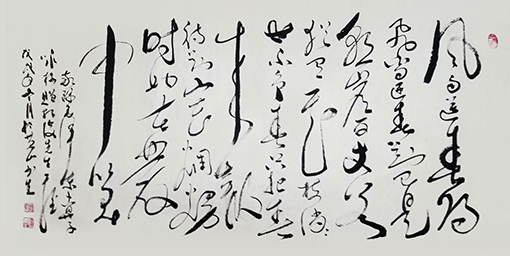 风雨送春归
飞雪迎春到已是
悬崖百丈冰
犹有花枝俏
也不争春只把春
来报
待到山花烂漫
时她在丛
中笑
咏梅赠 先生
戊戌年